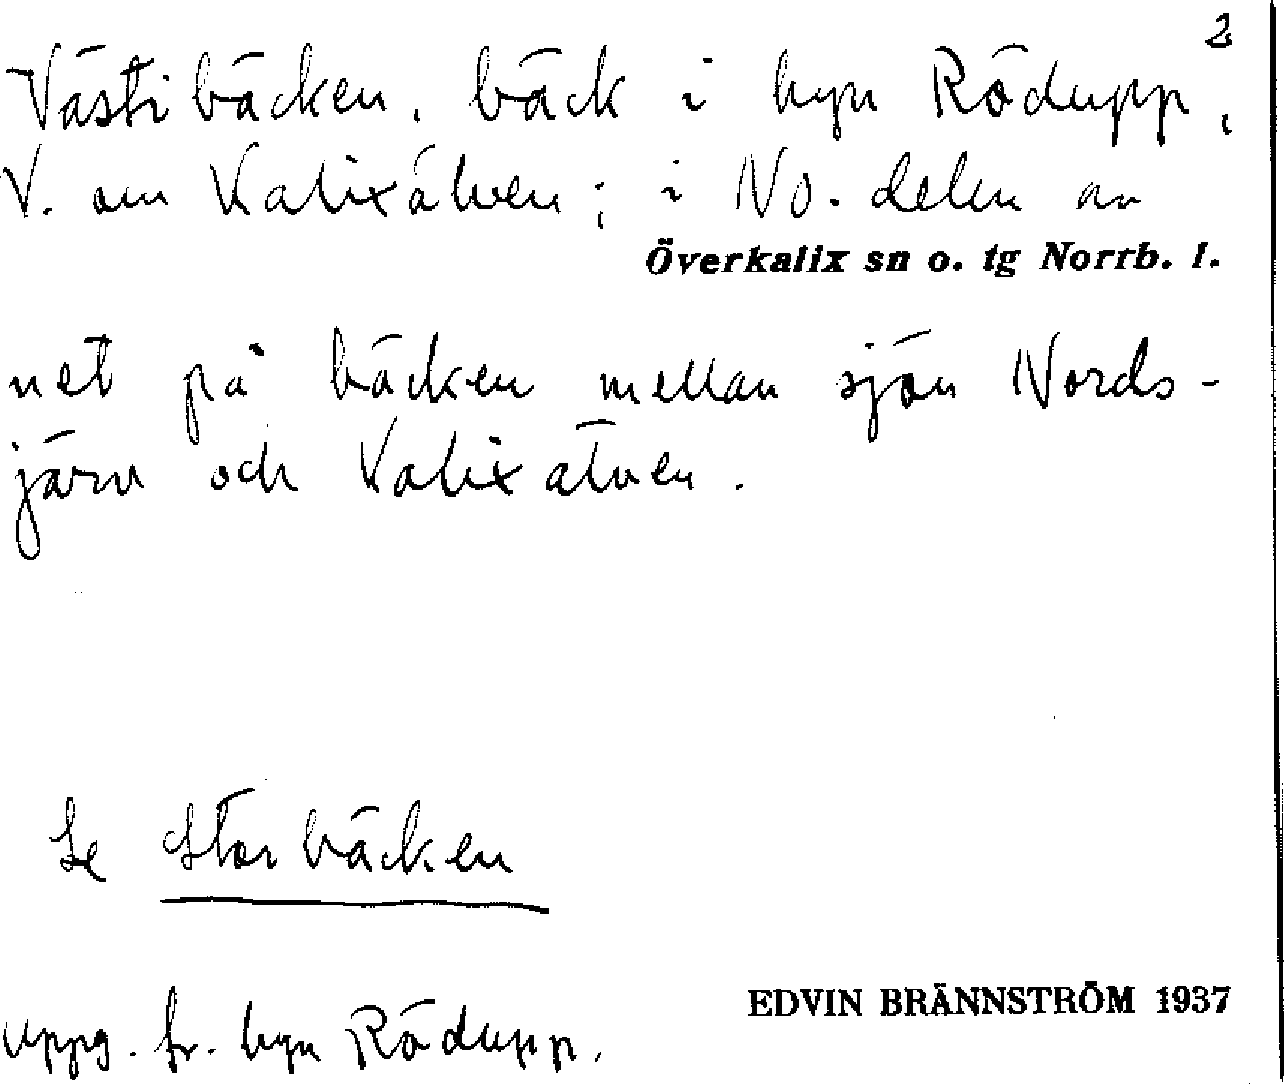 2
Västibäcken, bäck i byn Rödupp,
V. om Kalixälven; i NO. delen av
Överkalix sn o. tg Norrb. l.
net på bäcken mellan sjön Nords-
järv och Kalixälven.
Se Storbäcken
EDVIN BRÄNNSTRÖM 1937
uppg. fr. byn Rödupp.